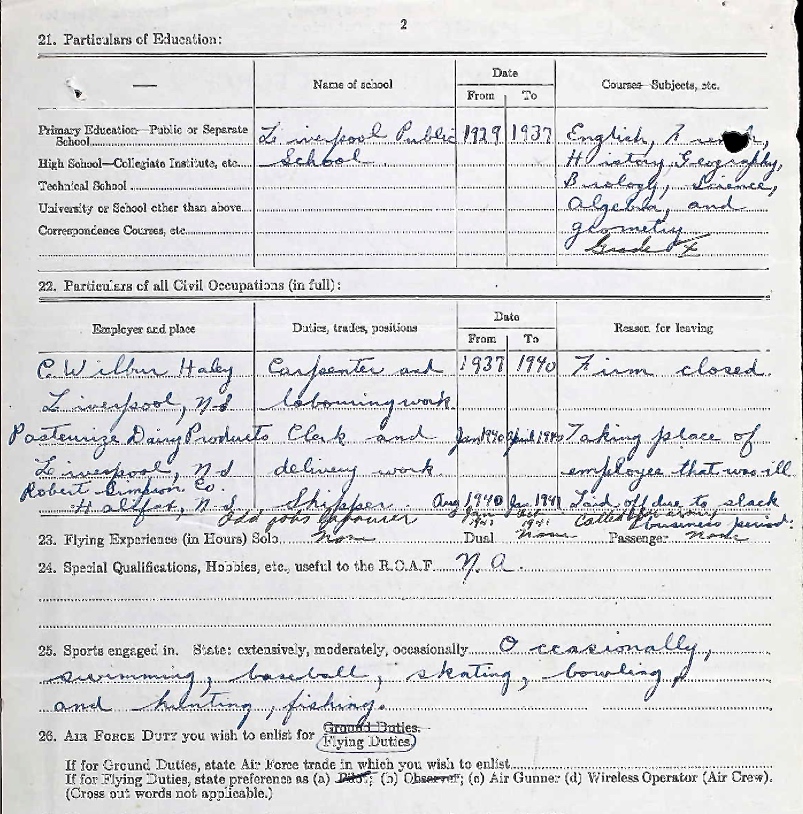 2
21. Particulars of Education:
Name of school Date Courses—Subjects, etc.
From To
Primary Education—Public or Separate School Liverpool Public 1929 1937 English, French,
High School—Collegiate Institute, etc. School History, Geography,
Technical School Biology, Science,
University or School other than above Algebra, and
Correspondence Courses, etc. geometry
Grade X
22. Particulars of all Civil Occupations (in full):
Employer and place Duties, trades, positions Date Reason for leaving
From To
C. Wilbur Haley Carpenter and 1937 1940 Firm closed.
Liverpool, N.S labouring work.
Pasteurize Dairy Products Clerk and Jan 1940 April 1940 Taking place of
Liverpool, N.S delivery work employee that was ill
Robert Simpson Co.
Halifax, N.S. Shipper. Aug 1940 Jan 1941 Laid off due to slack
business period.
Odd jobs labourer Jan 1941 Oct 1941 Called for army
23. Flying Experience (in Hours) Solo None Dual None Passenger None
24. Special Qualifications, Hobbies, etc., useful to the R.C.A.F. N.A.
25. Sports engaged in. State: extensively, moderately, occasionally Occasionally,
swimming, baseball, skating, bowling,
and hunting, fishing.
26. AIR FORCE DUTY you wish to enlist for Ground Duties.
Flying Duties.
If for Ground Duties, state Air Force trade in which you wish to enlist
If for Flying Duties, state preference as (a) Pilot; (b) Observer; (c) Air Gunner (d) Wireless Operator (Air Crew).
(Cross out words not applicable.)